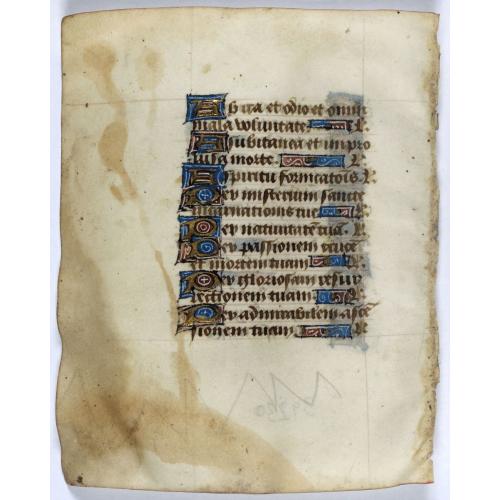 Ab ira et odio et omni
mala voluntate. L.
A subitanea et impro
visa morte. L.
A spiritu fornicatõis. L.
Per misterium sancte
incarnationis tue L.
Per nativitatẽ tuã. L.
Per passionem cruce
et mortem tuam L.
Per gloriosam resur
rectionem tuam L.
Per admirabilem ascẽ
sionem tuam L.